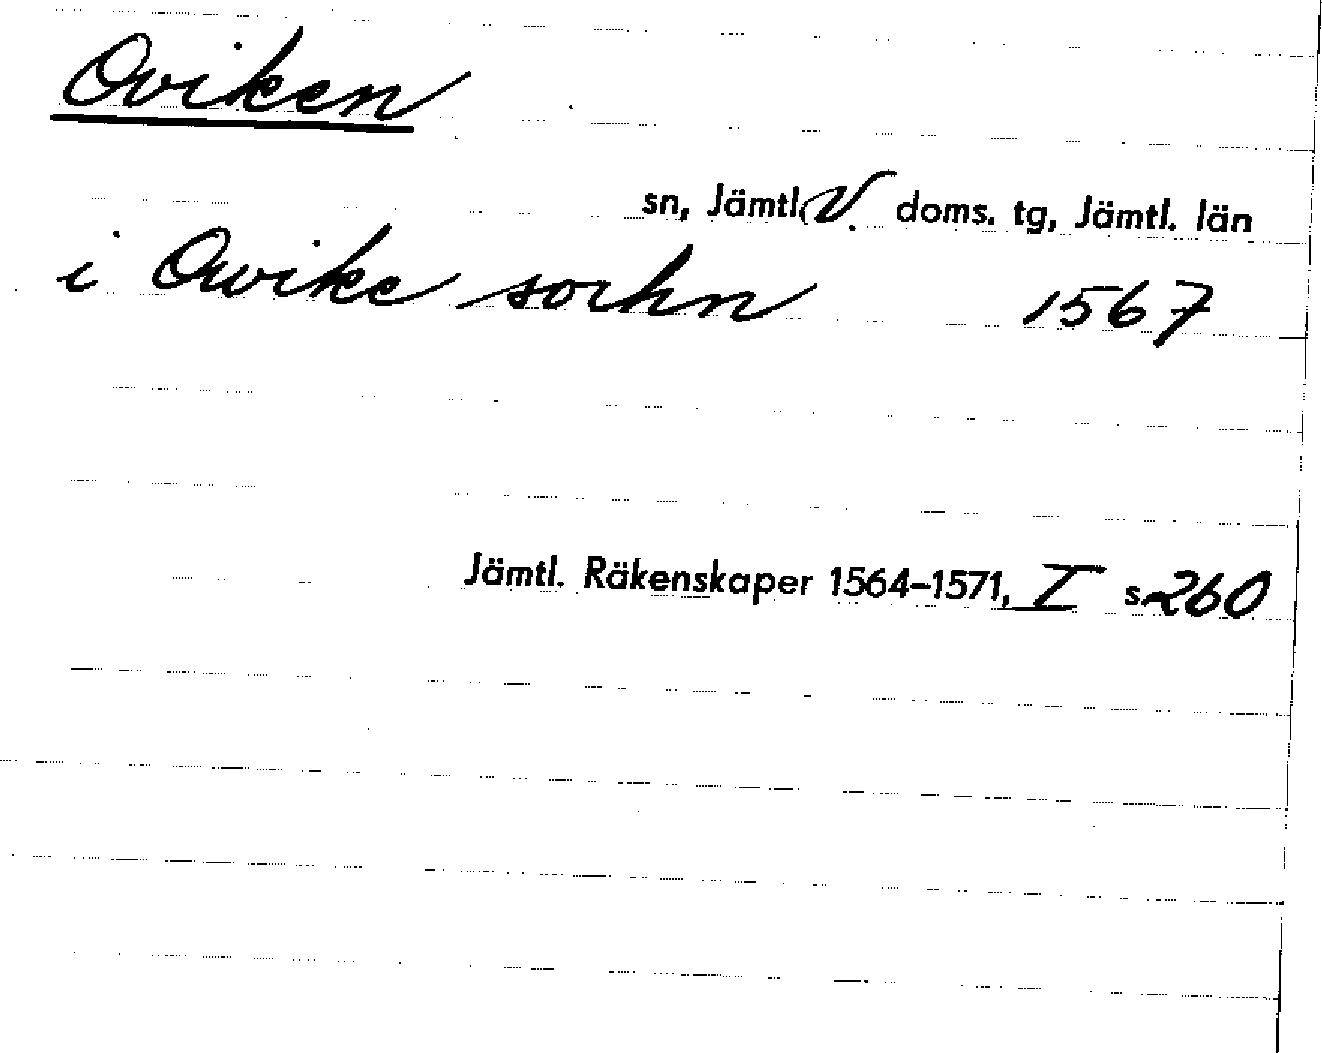 Oviken
sn, Jämtl. V. doms. tg, Jämtl. län
i Owike sockn 1567
Jämtl. Räkenskaper 1564–1571, I s. 260